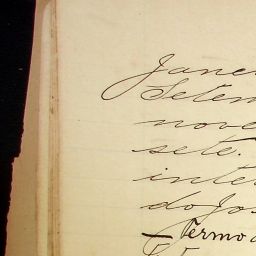 Janei
Setem
nove
sete.
inte
do Jo
— Termo